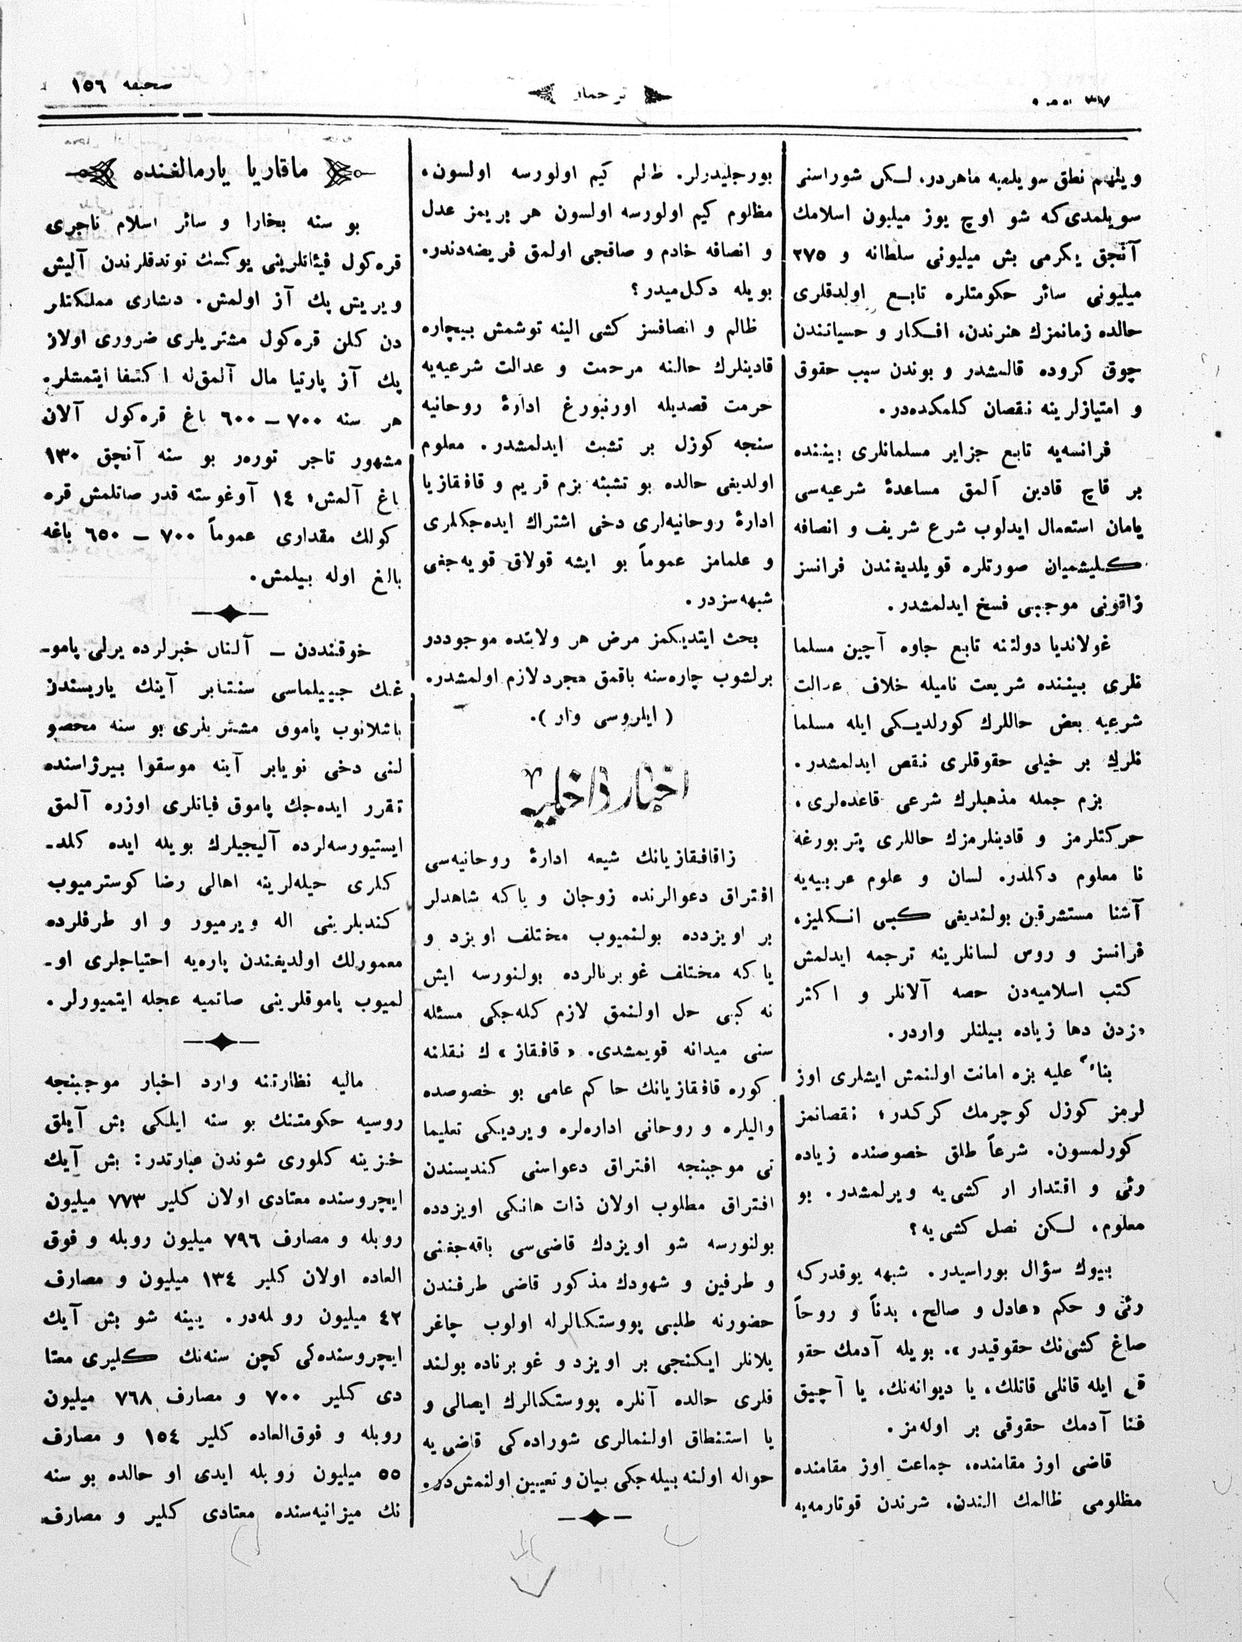 صحیفه ١٥٦
ترجمان
نومرو ٣٧
ویلهلم نطق سویلمیه ماهردر، لـکن شوراسنی
سویلمدی که شو اوچ یوز میلیون اسلامك
آنجق یکرمی بش میلیونی سلطانه و ٢٧٥
میلیونی سائر حکومتلره تابـع اولدقلری
حالده زمانمزك هنرندن، افـکار و حسیاتندن
چوق کروده قالمشدر و بوندن سبب حقوق
و امتیازلرینه نقصان کلمکده‌در.
فرانسه‌یه تابع جزایر مسلمانلری بیننده
بر قاچ قادین آلمق مساعدهٔ شرعیه‌سی
یامان استعمال ایدلوب شرع شریف و انصافه
کـلیشمیان صورتلره قویلدیغندن فرانسز
زاقونی موجبی فسخ ایدلمشدر.
غولاندیا دولتنه تابع جاوه آچین مسلما
نلری بیننده شریعت نامیله خلاف عدالت
شرعیه بعض حاللرك کورلدیـکی ایله مسلما
نلرك بر خیلی حقوقلری نقص ایدلمشدر.
بزم جمله مذهبلرك شرعی قاعده‌لری،
حرکتلرمز و قادینلرمزك حاللری پتربورغه
نا معلوم دکلدر. لسان و علوم عربیه‌یه
آشنا مستشرقین بولندیغی کـبی انـکلیز،
فرانسز و روس لسانلرینه ترجمه ایدلمش
کتب اسلامیه‌دن حصه آلانلر و اکثر
مزدن دها زیاده بیلنلر واردر.
بناءً علیه بزه امانت اولنمش ایشلری اوز
لرمز کوزل کوچرمك کرکدر؛ نقصانمز
کورلمسون. شرعاً طلاق خصوصنده زیاده
رئی و اقتدار ار کشی‌یه ویرلمشدر. بو
معلوم، لـکن نصل کشی‌یه؟
بیوك سؤال بوراسیدر. شبهه یوقدرکه
رئی و حکم «عادل و صالح، بدناً و روحاً
صاغ کشی‌نك حقوقیدر». بویله آدمك حقو
قی ایله قانلی قاتلك، یا دیوانه‌نك، یا آچیق
فنا آدمك حقوقی بر اوله‌مز.
قاضی اوز مقامنده، جماعت اوز مقامنده
مظلومی ظالمك الندن، شرندن قوتارمه‌یه
بورجلیدرلر. ظالم کیم اولورسه اولسون،
مظلوم کیم اولورسه اولسون هر بریمز عدل
و انصافه خادم و صاقجی اولمق فریضه‌دندر.
بویله دکل‌میدر؟
ظالم و انصافسز کشی الینه توشمش بیچاره
قادینلرك حالنه مرحمت و عدالت شرعیه‌یه
حرمت قصدیله اورنبورغ ادارهٔ روحانیه
سنجه کوزل بر تشبث ایدلمشدر. معلوم
اولدیغی حالده بو تشبثه بزم قریم و قافقازیا
ادارهٔ روحانیه‌لری دخی اشتراك ایده‌جکلری
و علمامز عموماً بو ایشه قولاق قویه‌جغی
شبهه‌سزدر.
بحث ایتدیکمز مرض هر ولایتده موجوددر
برلشوب چاره‌سنه باقمق مجرد لازم اولمشدر.
(ایلروسی وار).
اخبار داخلیه
زاقافقازیانك شیعه ادارهٔ روحانیه‌سی
افتراق دعوالرنده زوجان و یاکه شاهدلر
بر اویزدده بولنمیوب مختلف اویزد و
یاکه مختلف غوبرنالرده بولنورسه ایش
نه کبی حل اولنمق لازم کله‌جکی مسئله
سنی میدانه قویمشدی. «قافقاز»ك نقلنه
کوره قافقازیانك حاکم عامی بو خصوصده
والیلره و روحانی اداره‌لره ویردیکی تعلیما
تی موجبنجه افتراق دعواسنی کندیسندن
افتراق مطلوب اولان ذات هانکی اویزدده
بولنورسه شو اویزدك قاضی‌سی باقه‌جغنی
و طرفین و شهودك مذکور قاضی طرفندن
حضورنه طلبی پووستکالرله اولوب چاغر
یلانلر ایکنجی بر اویزد و غوبرناده بولند
قلری حالده آنلره پووستکالرك ایصالی و
یا استنطاق اولنمالری شوراده‌کی قاضی‌یه
حواله اولنه بیله‌جکی بیان و تعیین اولنمش‌در.
ماقاریا یارمالغنده
بو سنه بخارا و سائر اسلام تاجری
قره‌کول فیئاتلرینی یوکسك توتدقلرندن آلیش
ویریش پك آز اولمش. دشاری مملکتلر
دن کلن قره‌کول مشتریلری ضروری اولاز
پك آز پارتیا مال آلمق‌له اکتفا ایتمشلر.
هر سنه ٧٠٠ – ٦٠٠ باغ قره‌کول آلان
مشهور تاجر تورەر بو سنه آنجق ١٣٠
باغ آلمش؛ ١٤ آوغوسته قدر صاتلمش قره
کولك مقداری عموماً ٧٠٠ – ٦٥٠ باغه
بالغ اوله بیلمش.
خوقنددن – آلنان خبرلرده یرلی پامو-
غك جییلماسی سنتابر آینك یاریسندن
باشلانوب پاموق مشتریلری بو سنه محصو
لنی دخی نویابر آینه موسقوا بیرژاسنده
تقرر ایده‌جك پاموق فیاتلری اوزره آلمق
ایستیورسه‌لرده آلیجیلرك بویله ایده کلد-
کلری حیله‌لرینه اهالی رضا کوسترمیوب
کندیلرینی اله ویرمیور و او طرفلرده
معمورلك اولدیغندن پاره‌یه احتیاجلری او-
لمیوب پاموقلرینی صاتمیه عجله ایتمیورلر.
مالیه نظارتنه وارد اخبار موجبنجه
روسیه حکومتنك بو سنه ایلکی بش آیلق
خزینه کلوری شوندن عبارتدر: بش آیك
ایچروسنده معتادی اولان کلیر ٧٧٣ میلیون
روبله و مصارف ٧٩٦ میلیون روبله و فوق
العاده اولان کلیر ١٣٤ میلیون و مصارف
٤٢ میلیون روبله‌در. یینه شو بش آیك
ایچروسنده‌کی کچن سنه‌نك کلیری معتا
دی کلیر ٧٠٠ و مصارف ٧٦٨ میلیون
روبله و فوق‌العاده کلیر ١٥٤ و مصارف
٥٥ میلیون روبله ایدی او حالده بو سنه
نك میزانیه‌سنده معتادی کلیر و مصارف